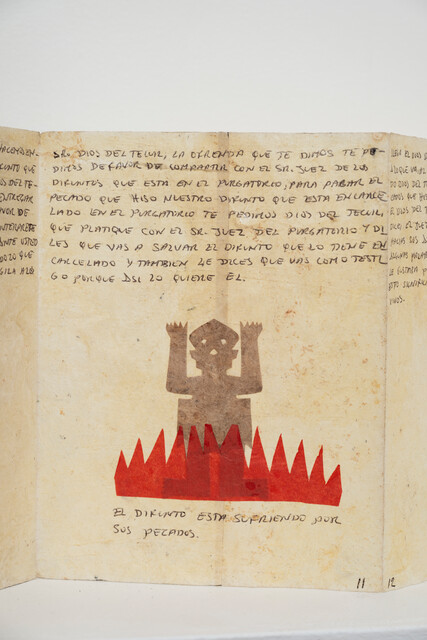 SR. DIOS DEL TECUIL, LA OFRENDA QUE TE DIMOS TE PE-
DIMOS DE FAVOR DE COMPARTIR CON EL SR. JUEZ DE LOS
DIFUNTOS QUE ESTA EN EL PURGATORIO, PARA PAGAR EL
PECADO QUE HISO NUESTRO DIFUNTO QUE ESTA ENCARCE
LADO EN EL PURGATORIO TE PEDIMOS DIOS DEL TECUIL,
QUE PLATIQUE CON EL SR. JUEZ DEL PURGATORIO Y DI
LES QUE VAS A SALVAR EL DIFUNTO QUE LO TIENE EN
CARCELADO Y TAMBIEN LE DICES QUE VAS COMO TESTI
GO PORQUE ASI LO QUIERE EL.
EL DIFUNTO ESTA SUFRIENDO POR
SUS PECADOS.
11
12